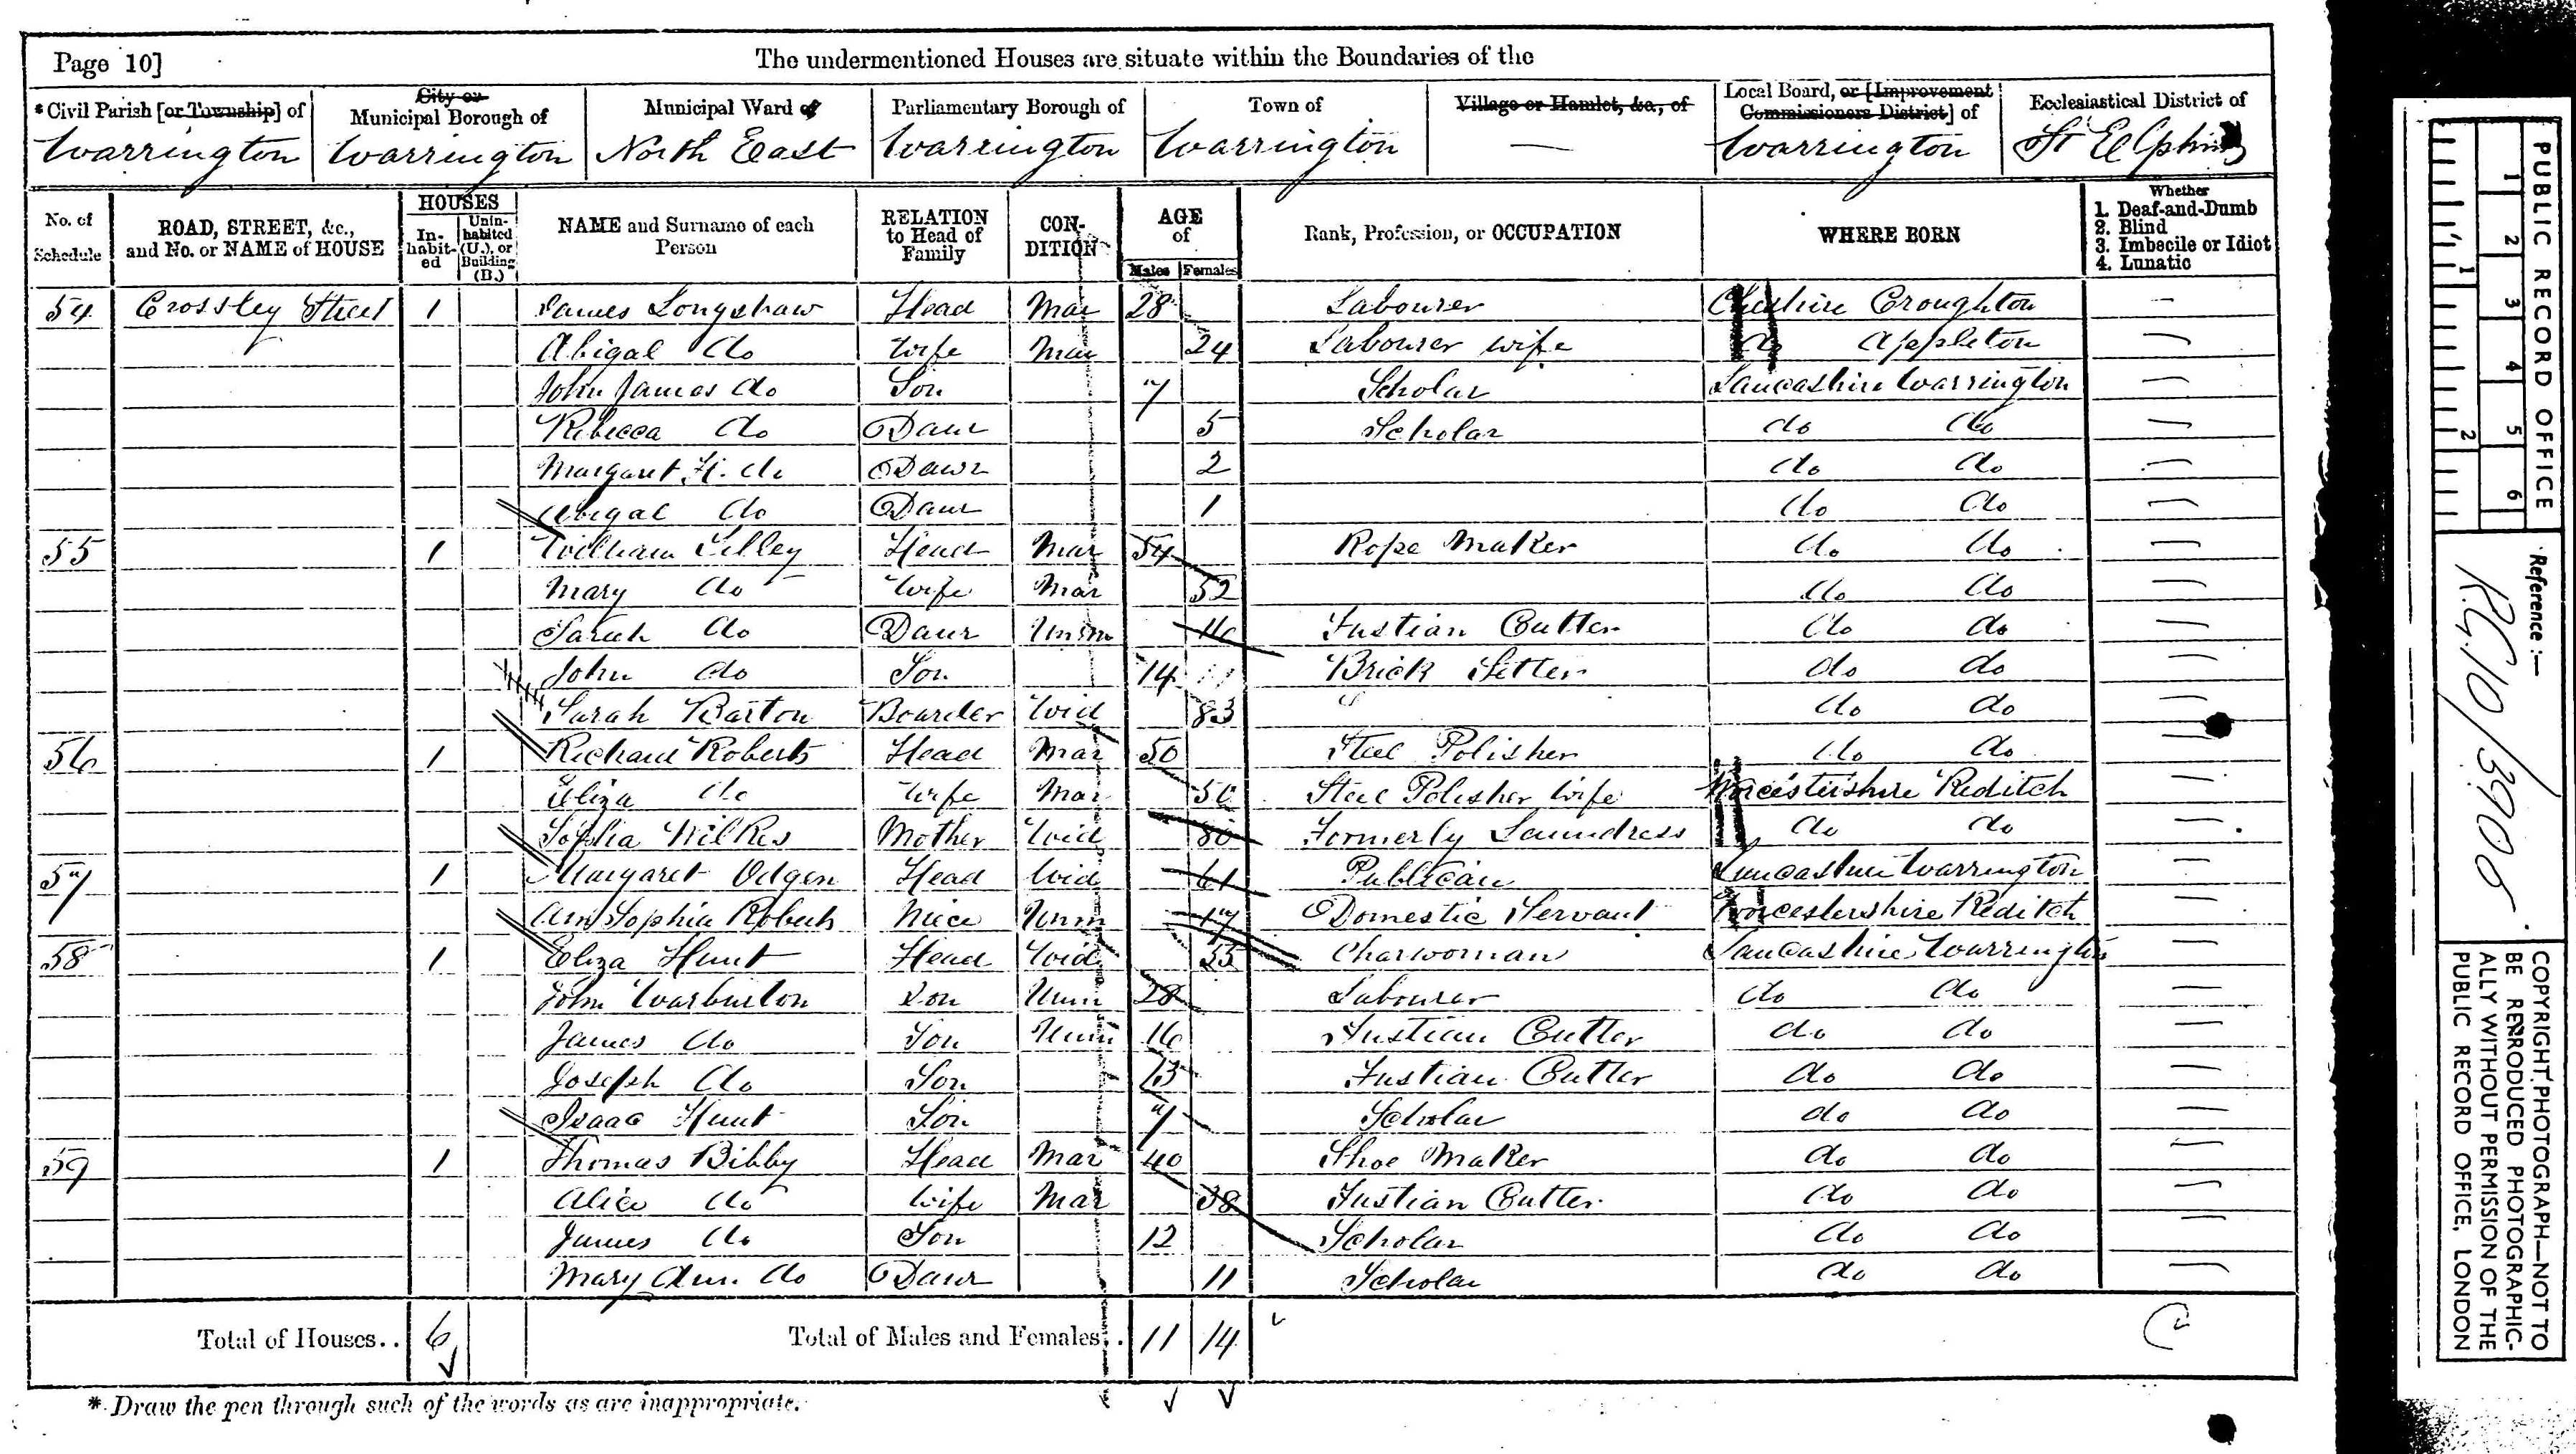 Page 10] The undermentioned Houses are situate within the Boundaries of the
* Civil Parish [or Township] of City or Municipal Borough of Municipal Ward of Parliamentary Borough of Town of Village or Hamlet, &c., of Local Board, or [Improvement Commissioners District] of Ecclesiastical District of
Warrington Warrington North East Warrington Warrington — Warrington St Elphins
No. of Schedule ROAD, STREET, &c., and No. or NAME of HOUSE HOUSES Inhabited Uninhabited (U.), or Building (B.) NAME and Surname of each Person RELATION to Head of Family CONDITION AGE of Males Females Rank, Profession, or OCCUPATION WHERE BORN Whether 1. Deaf-and-Dumb 2. Blind 3. Imbecile or Idiot 4. Lunatic
54 Crossley Street 1 James Longshaw Head Mar 28 Labourer Cheshire Croughton —
Abigal do Wife Mar 24 Labourer wife do Appleton —
John James do Son 7 Scholar Lancashire Warrington —
Rebecca do Daur 5 Scholar do do —
Margaret H. do Daur 2 do do —
Abigal do Daur 1 do do —
55 1 William Lilley Head Mar 54 Rope Maker do do —
Mary do Wife Mar 52 do do —
Sarah do Daur Unm 16 Fustian Cutter do do —
John do Son 14 Brick Setter do do —
Sarah Barton Boarder Wid 83 do do —
56 1 Richard Roberts Head Mar 50 Steel Polisher do do —
Eliza do Wife Mar 50 Steel Polisher Wife Worcestershire Reditch —
Sophia Wilkes Mother Wid 80 Formerly Laundress do do —
57 1 Margaret Odgen Head Wid 61 Publican Lancashire Warrington —
Ann Sophia Roberts Niece Unm 17 Domestic Servant Worcestershire Reditch —
58 1 Eliza Hunt Head Wid 55 Charwoman Lancashire Warrington —
John Warburton Son Unm 28 Labourer do do —
James do Son Unm 16 Fustian Cutter do do —
Joseph do Son 13 Fustian Cutter do do —
Isaac Hunt Son 7 Scholar do do —
59 1 Thomas Bibby Head Mar 40 Shoe Maker do do —
Alice do Wife Mar 38 Fustian Cutter do do —
James do Son 12 Scholar do do —
Mary Ann do Daur 11 Scholar do do —
Total of Houses.. 6 Total of Males and Females.. 11 14
* Draw the pen through such of the words as are inappropriate.
PUBLIC RECORD OFFICE
1 2 3 4 5 6
1 2
Reference :—
R.G. 10/3900
COPYRIGHT PHOTOGRAPH—NOT TO
BE REPRODUCED PHOTOGRAPHIC-
ALLY WITHOUT PERMISSION OF THE
PUBLIC RECORD OFFICE, LONDON